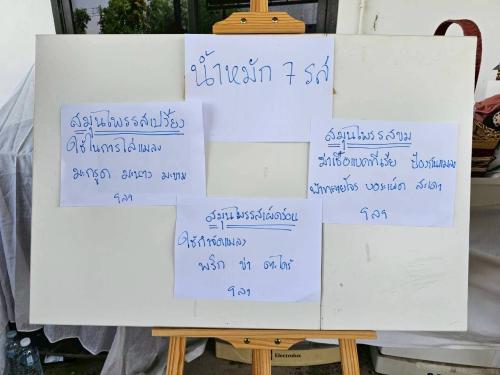 น้ำหมัก 7 รส
สมุนไพรรสเปรี้ยว
ใช้ในการไล่แมลง
มะกรูด มะนาว มะขาม
ฯลฯ
สมุนไพรรสขม
ฆ่าเชื้อแบคทีเรีย ป้องกันแมลง
ฟ้าทะลายโจร บอระเพ็ด สะเดา
ฯลฯ
สมุนไพรรสเผ็ดร้อน
ใช้กำจัดแมลง
พริก ข่า ตะไคร้
ฯลฯ
Electrolux